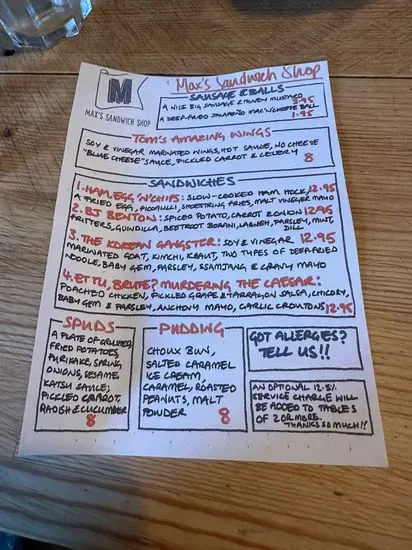 M
MAX'S SANDWICH SHOP
Max's Sandwich Shop
SAUSAGE & BALLS
A NICE BIG SAUSAGE & HONEY MUSTARD 3.95
A DEEP-FRIED JALAPEÑO MAC'N'CHEESE BALL 1.95
TOM'S AMAZING WINGS
SOY & VINEGAR MARINATED WINGS, HOT SAUCE, NO CHEESE
"BLUE CHEESE" SAUCE, PICKLED CARROT & CELERY 8
SANDWICHES
1. HAM, EGG 'N' CHIPS: SLOW-COOKED HAM HOCK, 12.95
A FRIED EGG, PICCALILLI, SHOESTRING FRIES, MALT VINEGAR MAYO
2. BJ BENTON: SPICED POTATO, CARROT & ONION 12.95
FRITTERS, GUINDILLA, BEETROOT BORANI, LABNEH, PARSLEY, MINT,
DILL
3. THE KOREAN GANGSTER: SOY & VINEGAR 12.95
MARINATED GOAT, KIMCHI, KRAUT, TWO TYPES OF DEEP-FRIED
NOODLE, BABY GEM, PARSLEY, SSAMJANG & GRAVY MAYO
4. ET TU, BRUTE? MURDERING THE CAESAR:
POACHED CHICKEN, PICKLED GRAPE & TARRAGON SALSA, CHICORY,
BABY GEM & PARSLEY, ANCHOVY MAYO, GARLIC CROUTONS 12.95
SPUDS
A PLATE OF GRILLED,
FRIED POTATOES,
FURIKAKE, SPRING
ONIONS, SESAME,
KATSU SAUCE,
PICKLED CARROT,
RADISH & CUCUMBER
8
PUDDING
CHOUX BUN,
SALTED CARAMEL
ICE CREAM,
CARAMEL, ROASTED
PEANUTS, MALT
POWDER 8
GOT ALLERGIES?
TELL US!!
AN OPTIONAL 12.5%
SERVICE CHARGE WILL
BE ADDED TO TABLES
OF 2 OR MORE.
THANKS SO MUCH!!